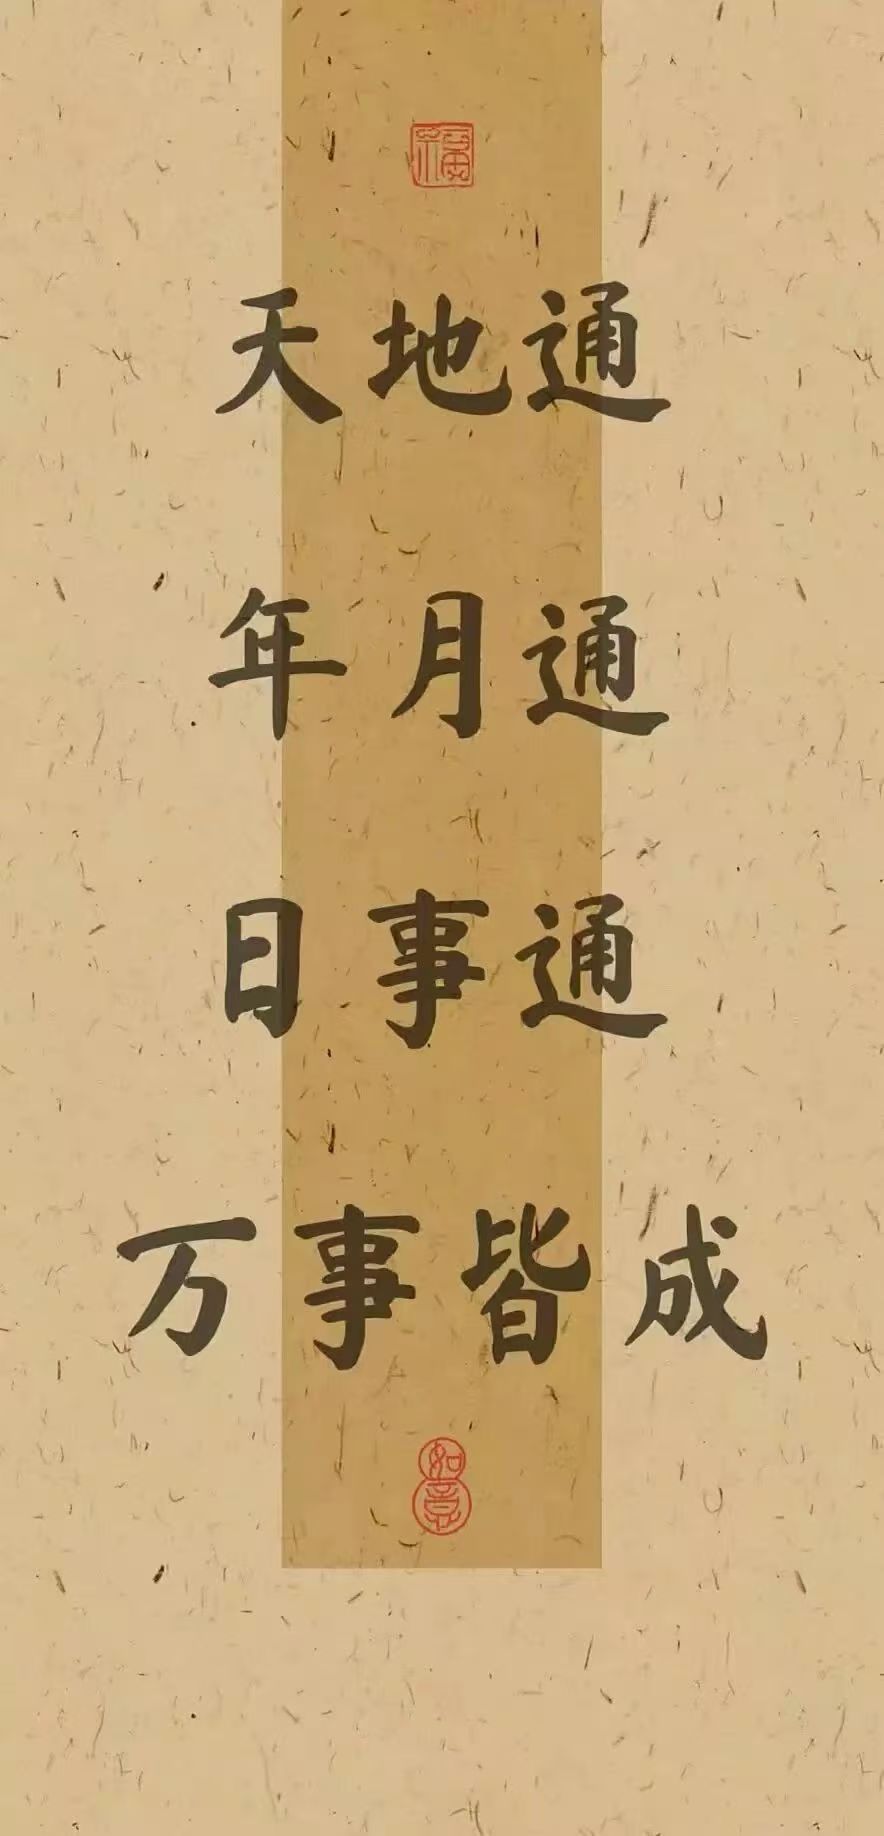 福
天地通
年月通
日事通
万事皆成
如意